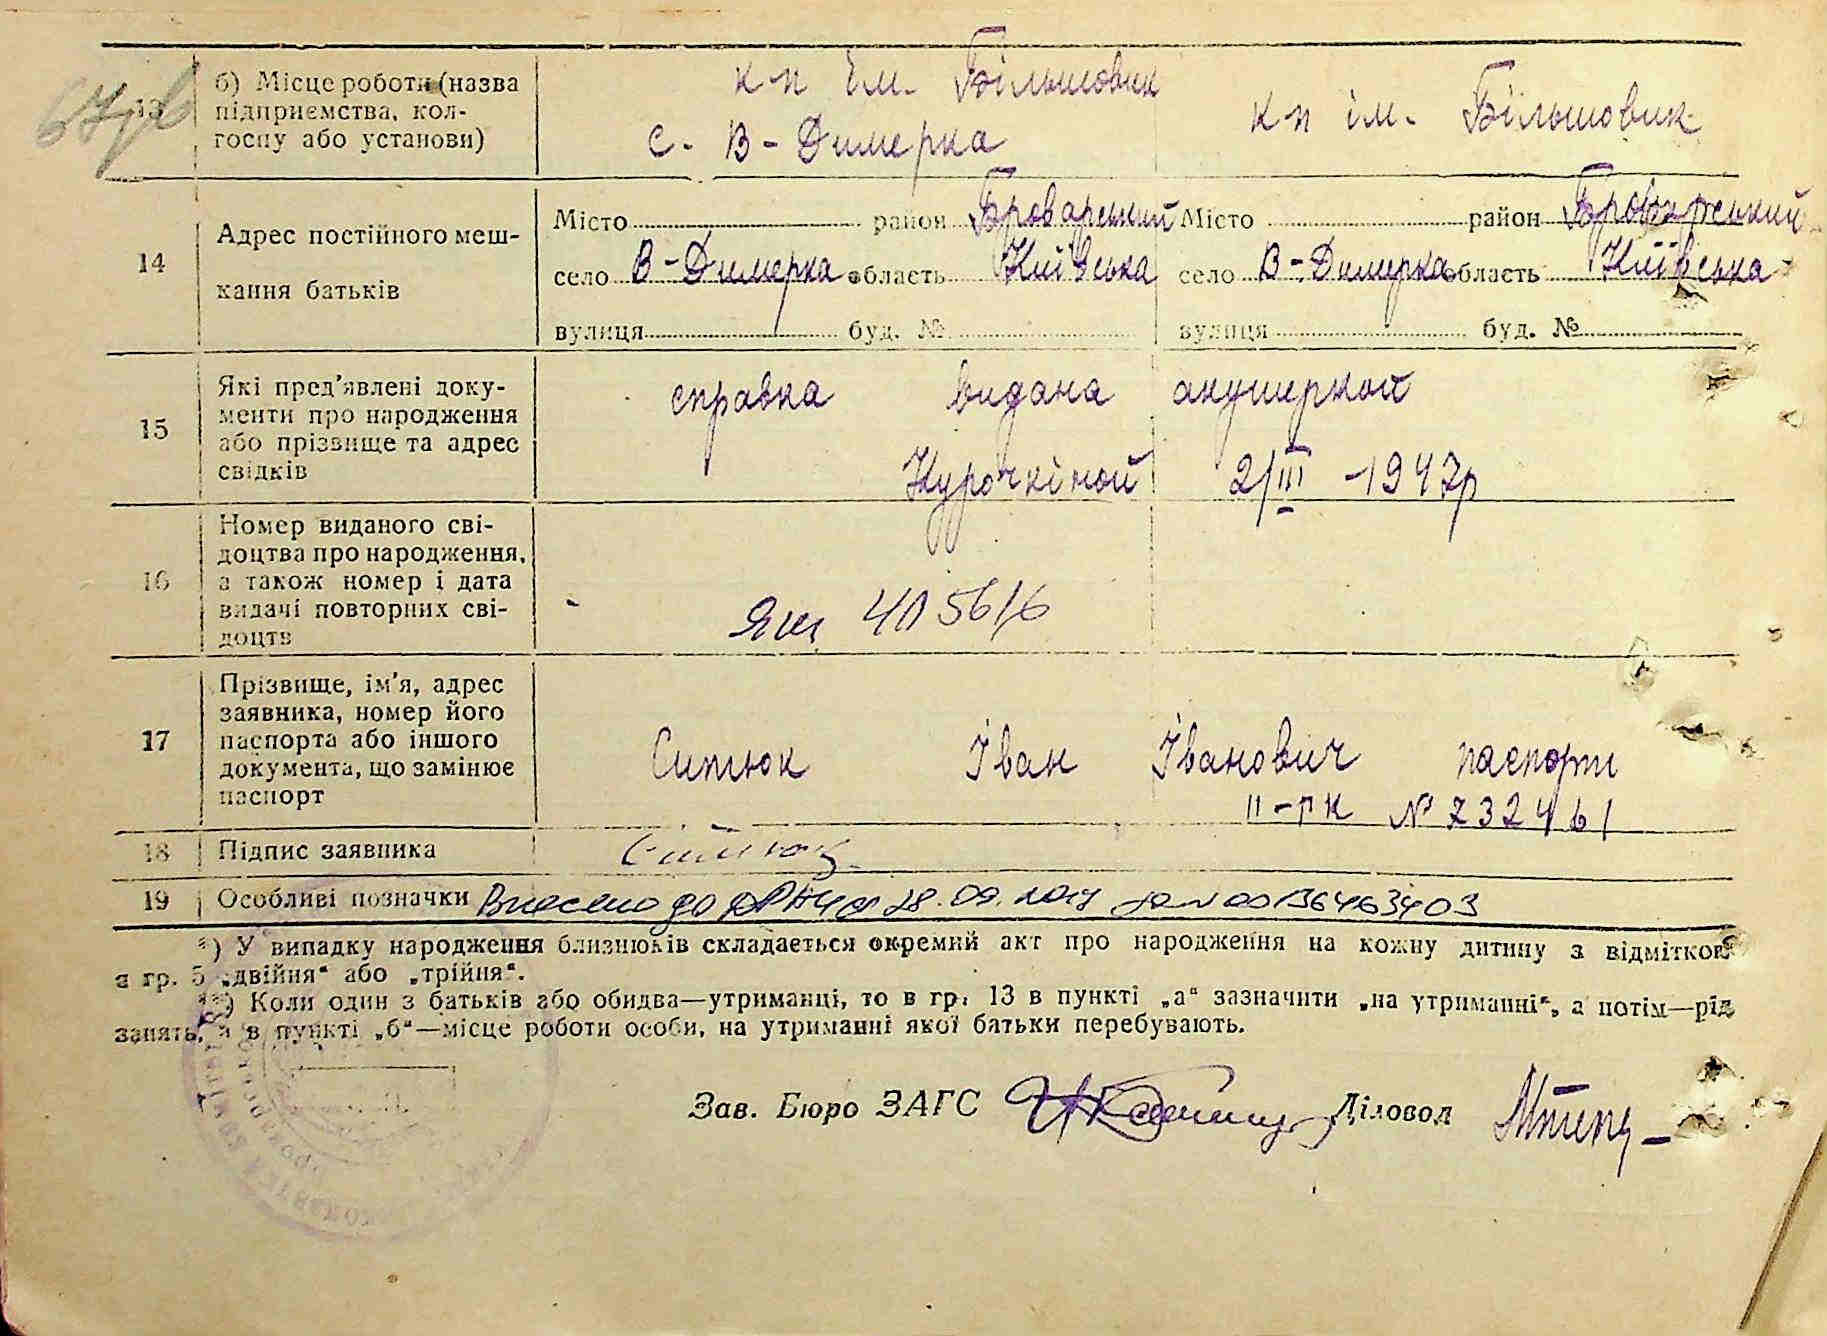 13 б) Місце роботи (назва підприємства, колгоспу або установи)
к-п ім. Більшовик
с. В-Димерка
к п ім. Більшовик
14 Адрес постійного мешкання батьків
Місто район Броварський Місто район Броварський
село В-Димерка область Київська село В-Димерка область Київська
вулиця буд. № вулиця буд. №
15 Які пред'явлені документи про народження або прізвище та адрес свідків
справка видана акушеркой
Курочкіной 2/III -1947р
16 Номер виданого свідоцтва про народження, а також номер і дата видачі повторних свідоцтв
17 Прізвище, ім'я, адрес заявника, номер його паспорта або іншого документа, що замінює паспорт
Ситюк Іван Іванович паспорт
II-РК № 732461
18 Підпис заявника Ситюк
19 Особливі позначки Внесено до ДРАЦС 28.09.2017 за № 00136463403
*) У випадку народження близнюків складається окремий акт про народження на кожну дитину з відміткою
в гр. 5 „двійня“ або „трійня“.
**) Коли один з батьків або обидва—утриманці, то в гр. 13 в пункті „а“ зазначити „на утриманні“, а потім—рід
занять, а в пункті „б“—місце роботи особи, на утриманні якої батьки перебувають.
Зав. Бюро ЗАГС Діловод